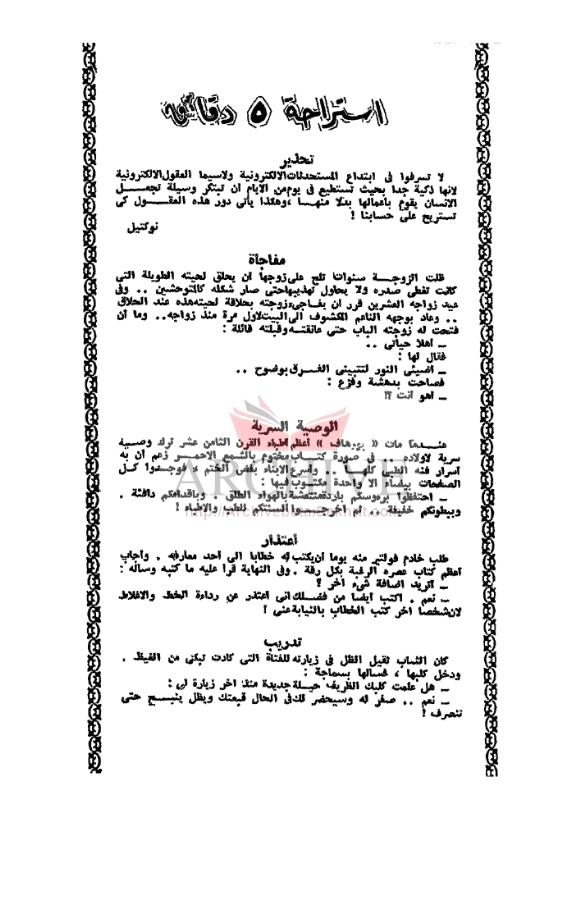 استراحة ٥ دقائق
تحذير
لا تسرفوا فى ابتداع المستحدثات الالكترونية ولاسيما العقول الالكترونية
لانها ذكية جدا بحيث تستطيع فى يوم من الايام ان تبتكر وسيلة تجعـــل
الانسان يقوم باعمالها بدلا منهـا ، وهكذا ياتى دور هذه العقــول كى
تستريح على حسابنا !
نوكتيل
مفاجاة
ظلت الزوجــة سنوات تلح على زوجها ان يحلق لحيته الطويلة التى
كانت تغطى صدره ولا يحاول تهذيبها حتى صار شكله كالمتوحشين .. وفى
عيد زواجه العشرين قرر ان يفاجىء زوجته بحلاقة لحيته هذه عند الحلاق
.. وعاد بوجهه الناعم المكشوف الى البيت لاول مرة منذ زواجه .. وما ان
فتحت له زوجته الباب حتى عانقته وقبلته قائلة :
ـ اهلا حياتى ..
فقال لها :
ـ اضيئى النور لتتبينى الفرق بوضوح ..
فصاحت بدهشة وفزع :
ـ اهو انت ؟!
الوصية السرية
عنــدما مات « بورهاف » اعظم اطباء القرن الثامن عشر ترك وصــية
سرية لاولاده .. فى صورة كتــاب مختوم بالشمع الاحمــر زعم ان به
اسرار فنه الطبى كلهــا .. واسرع الابناء بفض الختم ، فوجدوا كــل
الصفحات بيضاء الا واحدة مكتــوب فيها :
ـ احتفظوا برءوسكم باردة منتعشة بالهواء الطلق . وباقدامكم دافئة .
وبطونكم خفيفة .. ثم اخرجــوا السنتكم للطب والاطباء !
ARCHIVE
اعتذار
طلب خادم فولتير منه يوما ان يكتب له خطابا الى احد معارفه . واجاب
اعظم كتاب عصره الرغبة بكل رقة . وفى النهاية قرا عليه ما كتبه وساله :
ـ اتريد اضافة شىء اخر ؟
ـ نعم . اكتب ايضا من فضــلك انى اعتذر عن رداءة الخط والاغلاط
لان شخصا اخر كتب الخطاب بالنيابة عنى !
تدريب
كان الشاب ثقيل الظل فى زيارته للفتاة التى كادت تبكى من الغيظ .
ودخل كلبها ، فسالها بسماجة :
ـ هل علمت كلبك الظريف حيــلة جديدة منذ اخر زيارة لى :
ـ نعم .. صفر له وسيحضر لك فى الحال قبعتك ويظل ينبــح حتى
تنصرف !